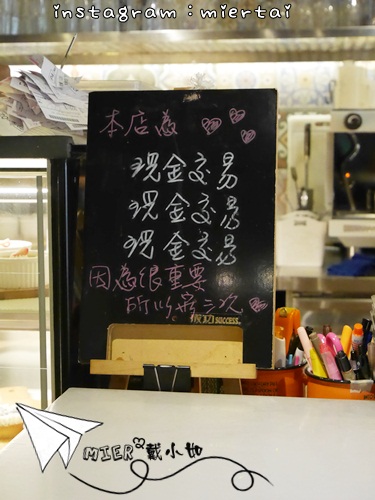 instagram：miertai
本店為
現金交易
現金交易
現金交易
因為很重要
所以寫三次
成功 SUCCESS
MIER 戴小如